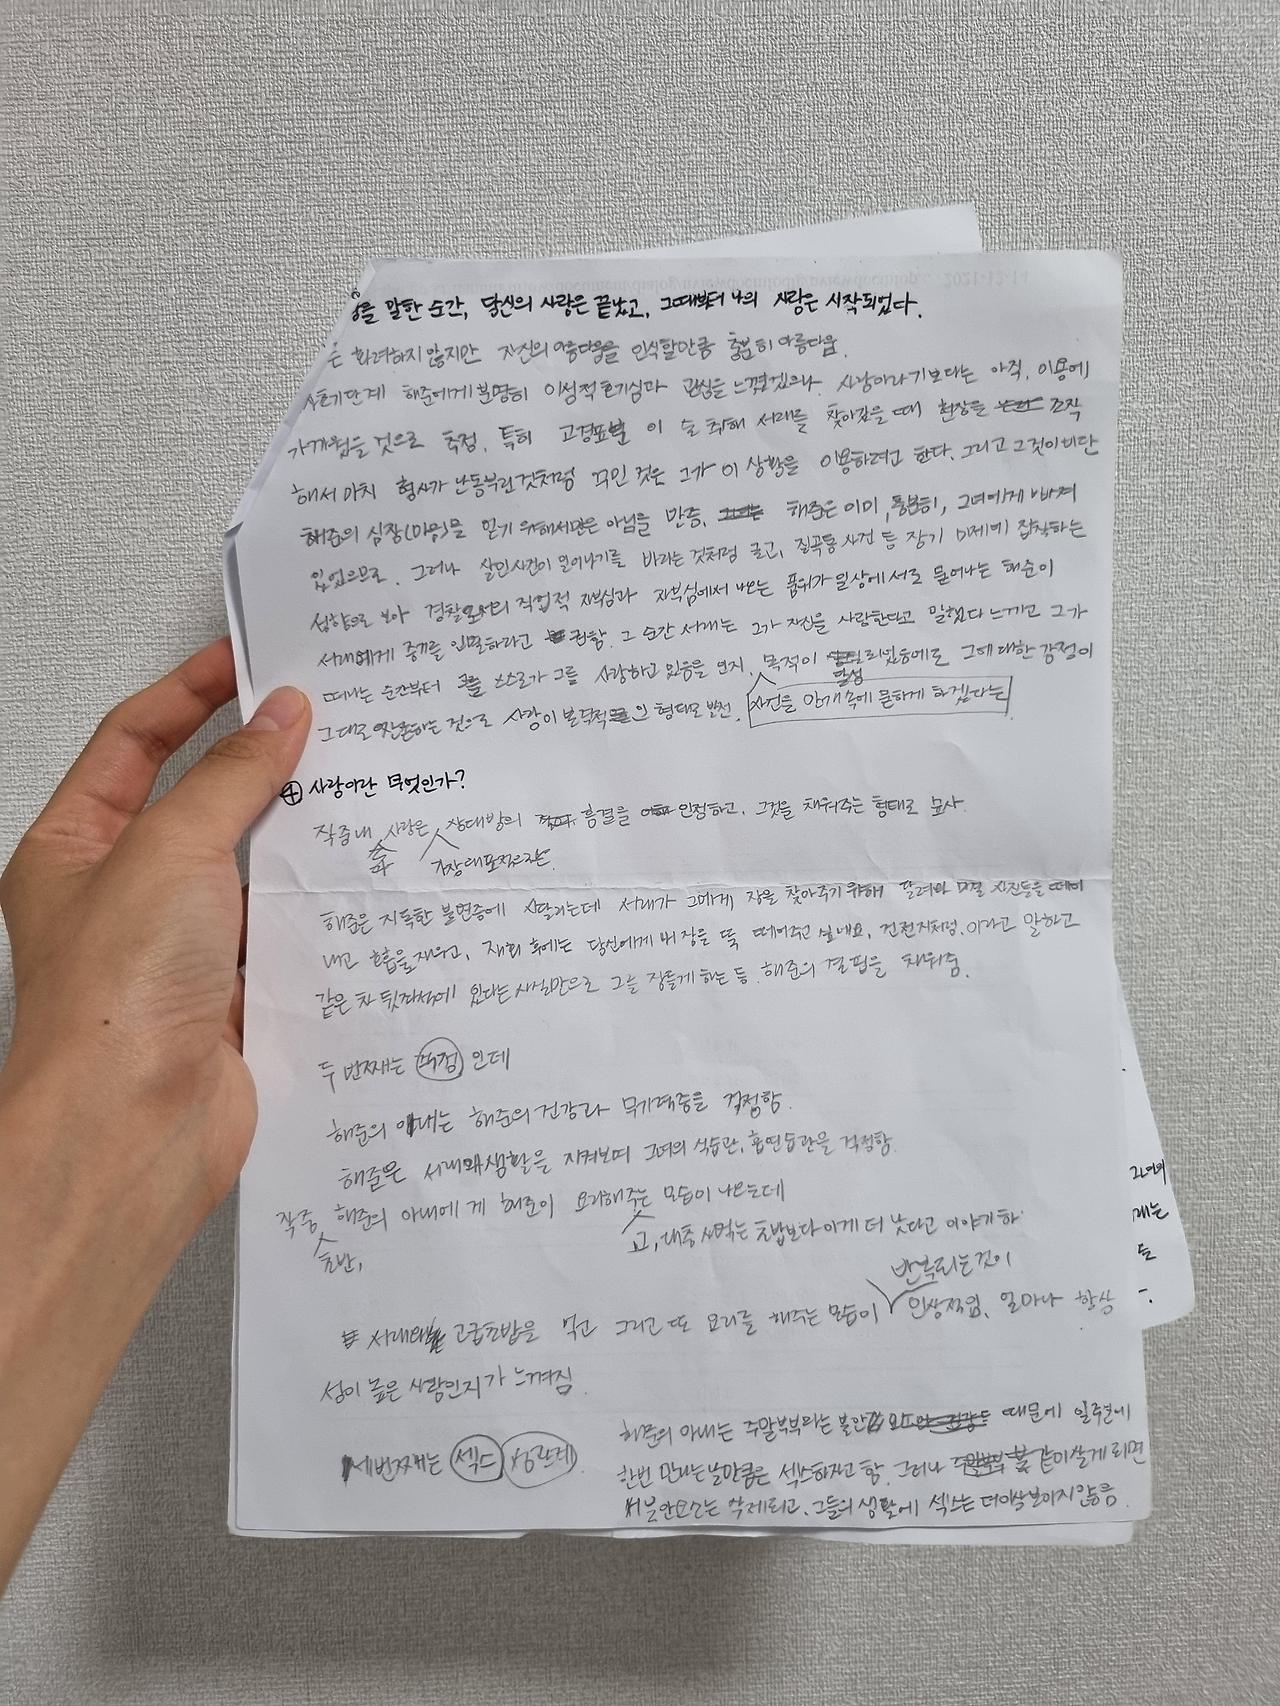 을 말한 순간, 당신의 사랑은 끝났고, 그때부터 나의 사랑은 시작되었다.
은 화려하지 않지만 자신의 아름다움을 인식할만큼 충분히 아름다움.
초기단계 해준에게 분명히 이성적 호기심과 관심을 느꼈겠으나, 사랑이라기보다는 아직, 이용에
가까웠을 것으로 추정. 특히 고경표분이 술 취해 서래를 찾아갔을 때 현장을 조작
해서 마치 형사가 난동부린것처럼 꾸민 것은 그가 이 상황을 이용하려고 한다. 그리고 그것이 비단
해준의 심장(마음)을 얻기 위해서만은 아님을 반증. 해준은 이미, 충분히, 그녀에게 빠져
있었으므로. 그러나 살인사건이 일어나기를 바라는 것처럼 굴고, 질곡동 사건 등 장기 미제에 집착하는
성향으로 보아 경찰로서의 직업적 자부심과 자부심에서 나오는 품위가 일상에서도 묻어나는 해준이
서래에게 증거를 인멸하라고 권함. 그 순간 서래는 그가 자신을 사랑한다고 말했다 느끼고 그가
떠나는 순간부터 스스로가 그를 사랑하고 있음을 인지. 목적이 달성되었음에도 그에 대한 감정이
그대로 잔존하는 것으로 사랑이 본격적인 형태로 발전. 사건을 안개속에 묻히게 하겠다는
+ 사랑이란 무엇인가?
작중 내 사랑은 상대방의 흠결을 인정하고, 그것을 채워주는 형태로 묘사.
가장 대표적으로는
해준은 지독한 불면증에 시달리는데 서래가 그에게 잠을 찾아주기 위해 달려와 미결 사진들을 떼어
내고 호흡을 재우고, 재회 후에는 당신에게 내 잠을 뚝 떼어주고 싶네요, 건전지처럼. 이라고 말하고
같은 차 뒷좌석에 있다는 사실만으로 그를 잠들게 하는 등. 해준의 결핍을 채워줌.
두 번째는 걱정 인데
해준의 아내는 해준의 건강과 무기력증을 걱정함.
해준은 서래의 생활을 지켜보며 그녀의 식습관, 흡연습관을 걱정함.
작중 초반, 해준의 아내에게 해준이 요리해주는 모습이 나오는데
고, 대충 사먹는 초밥보다 이게 더 낫다고 이야기하
반복되는 것이
서래와 고급초밥을 먹고 그리고 또 요리를 해주는 모습이 인상적임. 얼마나 항상
성이 높은 사람인지가 느껴짐.
세번째는 섹스 성관계
해준의 아내는 주말부부라는 불안 때문에 일주일에
한번 만나는 날만큼은 섹스하자고 함. 그러나 같이살게 되면
서 불안요소는 삭제되고, 그들의 생활에 섹스는 더이상 보이지 않음.
그녀의
는
들